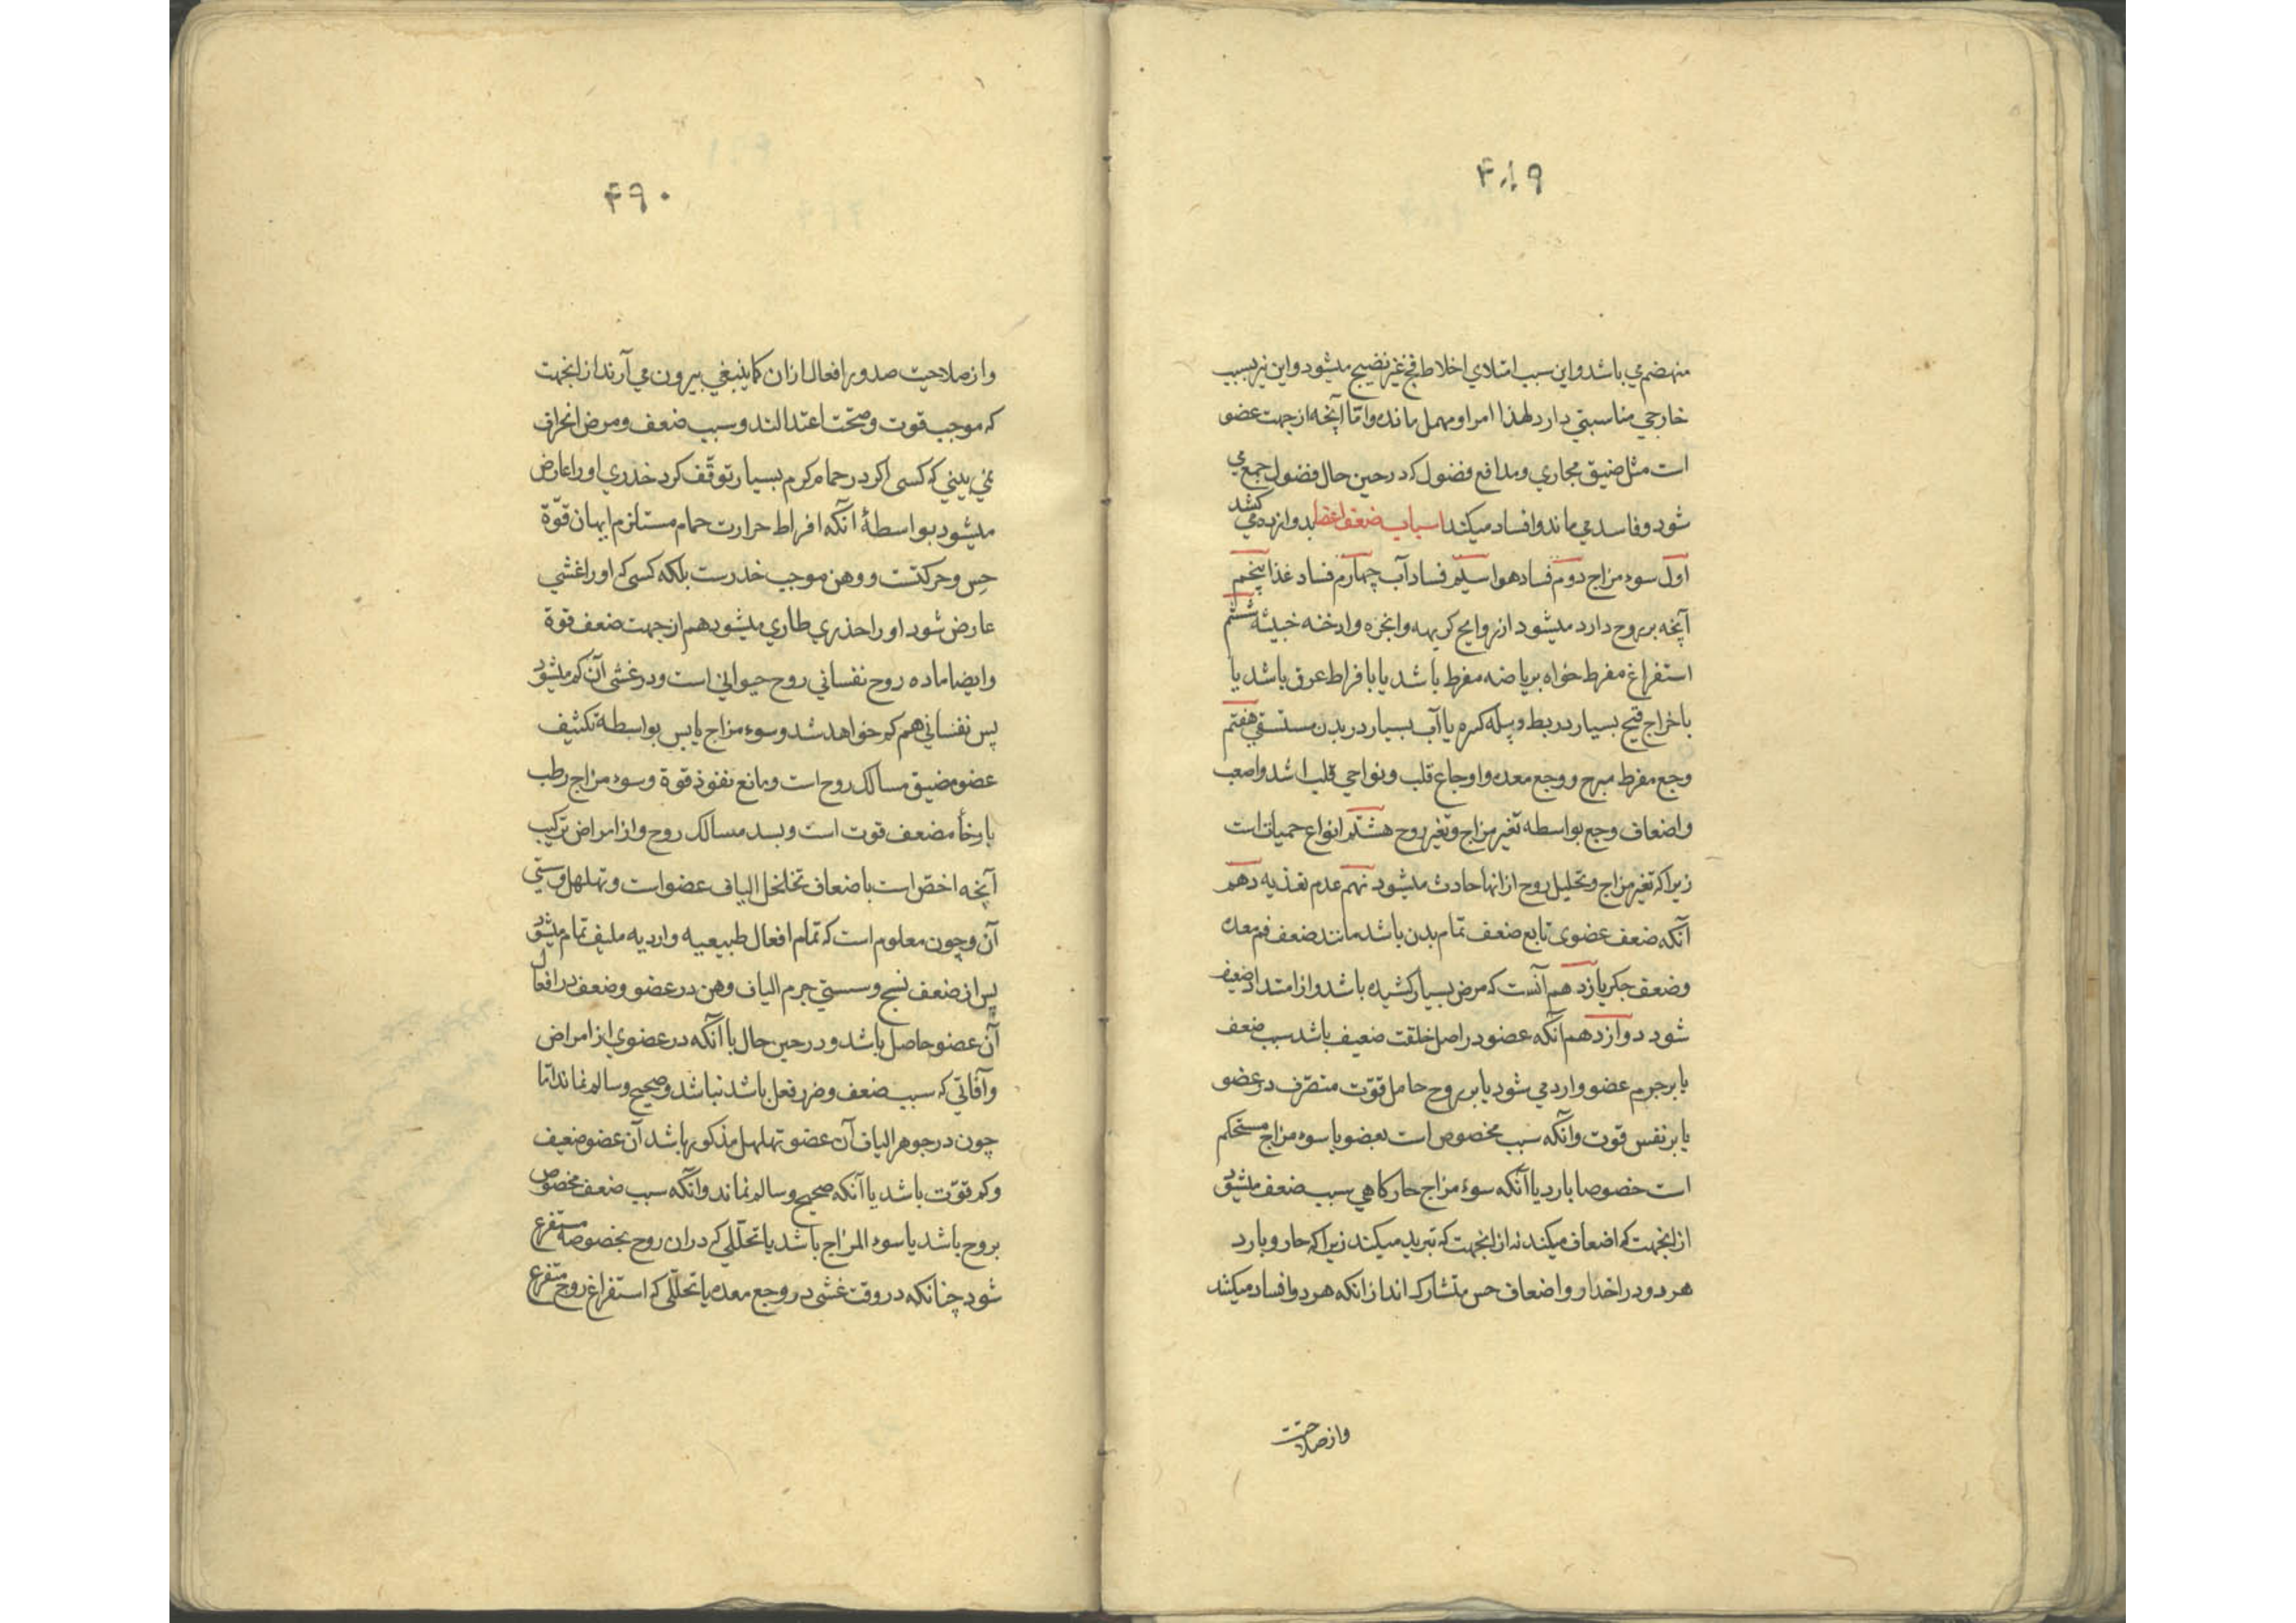 ۴۸۹
منهضم می باشد و این سبب امتلای اخلاط فج غیر نضیج میشود و این نیز بسبب
خارجی مناسبتی دارد لهذا امر او مهمل مانده و امّا آنچه از جهت عضو
است مثل ضیق مجاری و مدافع فضول که در حین حال فضول جمع می
شود و فاسد می ماند و افساد میکند اسباب ضعف اعضا بدوازده می کشد
اول سوء مزاج دوم فساد هوا سیّم فساد آب چهارم فساد غذا پنجم
آنچه بر روح دارد میشود از روایح کریهه و ابخره و ادخنه خبیثه ششم
استفراغ مفرط خواه بریاضه مفرط باشد یا بافراط عرق باشد یا
باخراج قیح بسیار در بط و بیله کره یا آب بسیار در بدن مستسقی هفتم
وجع مفرط مبرح و وجع معده و اوجاع قلب و نواحی قلب اشد و اصعب
و اضعاف وجع بواسطه تغیر مزاج و تغیر روح هشتم انواع حمیات است
زیرا که تغیر مزاج و تحلیل روح از انها حادث میشود نهم عدم تغذیه دهم
آنکه ضعف عضوی تابع ضعف تمام بدن باشد مانند ضعف فم معده
و ضعف جکر یازدهم آنست که مرض بسیار کشیده باشد و از امتداد ضعیف
شود دوازدهم آنکه عضو در اصل خلقت ضعیف باشد سبب ضعف
یا بر جرم عضو وارد می شود یا بر روح حامل قوّت متصرّف در عضو
یا بر نفس قوت و آنکه سبب مخصوص است بعضو یا سوء مزاج مستحکم
است خصوصا بارد یا آنکه سوء مزاج حار کاهی سبب ضعف میشود
از انجهت که اضعاف میکند نه از انجهت که تبرید میکند زیرا که حار و بارد
هر دو در اخدار و اضعاف حس متشارک اند از انکه هر دو افساد میکنند
و از صلاحیت
۴۹۰
و از صلاحیت صدور افعال از ان کما ینبغی بیرون می آرند از انجهت
که موجب قوت و صحّت اعتدالند و سبب ضعف و مرض انحراف
نمی بینی که کسی اکر در حمام کرم بسیار توقّف کرد خدری او را عارض
میشود بواسطهٔ آنکه افراط حرارت حمام مستلزم ایهان قوّة
حِس و حرکتست و وهن موجب خدرست بلکه کسی که او را غشی
عارض شود او را خدری طاری میشود هم از جهت ضعف قوة
و ایضا ماده روح نفسانی روح حیوانی است و در غشی آن کم میشود
پس نفسانی هم کم خواهد شد و سوء مزاج یابس بواسطهٔ تکثیف
عضو مضیق مسالک روح است و مانع نفوذ قوة و سوء مزاج رطب
بارخأ مضعف قوت است و بسد مسالک روح و از امراض ترکیب
آنچه اخصّ است باضعاف تخلخل الیاف عضو است و تهلهل و سستی
آن و چون معلوم است که تمام افعال طبیعیه و اردیه ملیف تمام میشود
پس از ضعف نسج و سستی جرم الیاف وهن در عضو و ضعف در افعال
آن عضو حاصل باشد و در حین حال با آنکه در عضوی از امراض
و آفاتی که سبب ضعف و ضرر فعل باشد نباشد و صحیح و سالم نماند امّا
چون در جوهر الیاف آن عضو تهلهل مذکور باشد آن عضو ضعیف
و کم قوّت باشد یا آنکه صحیح و سالم نماند و آنکه سبب ضعف مخصوص
بروح باشد یا سوء المزاج باشد یا تحلّلی که در ان روح بخصوصه مستفرغ
شود چنانکه در وقت غشی در وجع معده یا تحلّلی که استفراغ روح متفرع